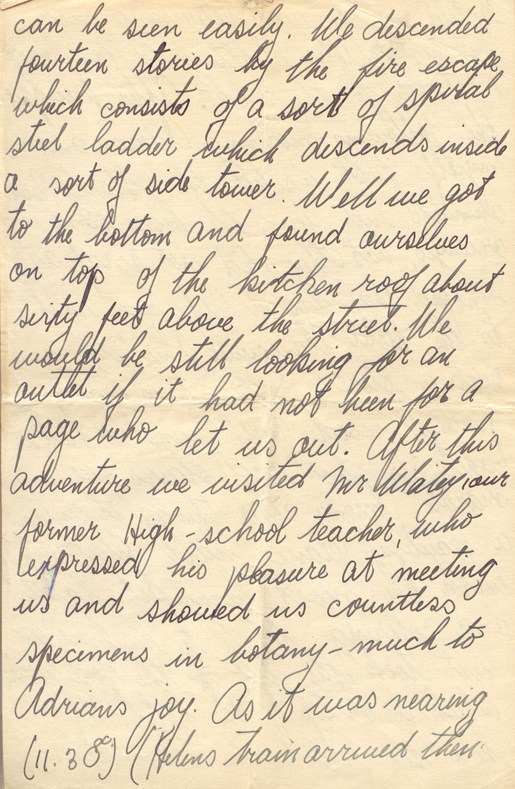 can be seen easily. We descended
fourteen stories by the fire escape
which consists of a sort of spiral
steel ladder which descends inside
a sort of side tower. Well we got
to the bottom and found ourselves
on top of the kitchen roof about
sixty feet above the street. We
would be still looking for an
outlet if it had not been for a
page who let us out. After this
adventure we visited Mr our
former High-school teacher, who
expressed his pleasure at meeting
us and showed us countless
specimens in botany - much to
Adrians joy. As it was nearing
(11.30) (Helens train arrived then